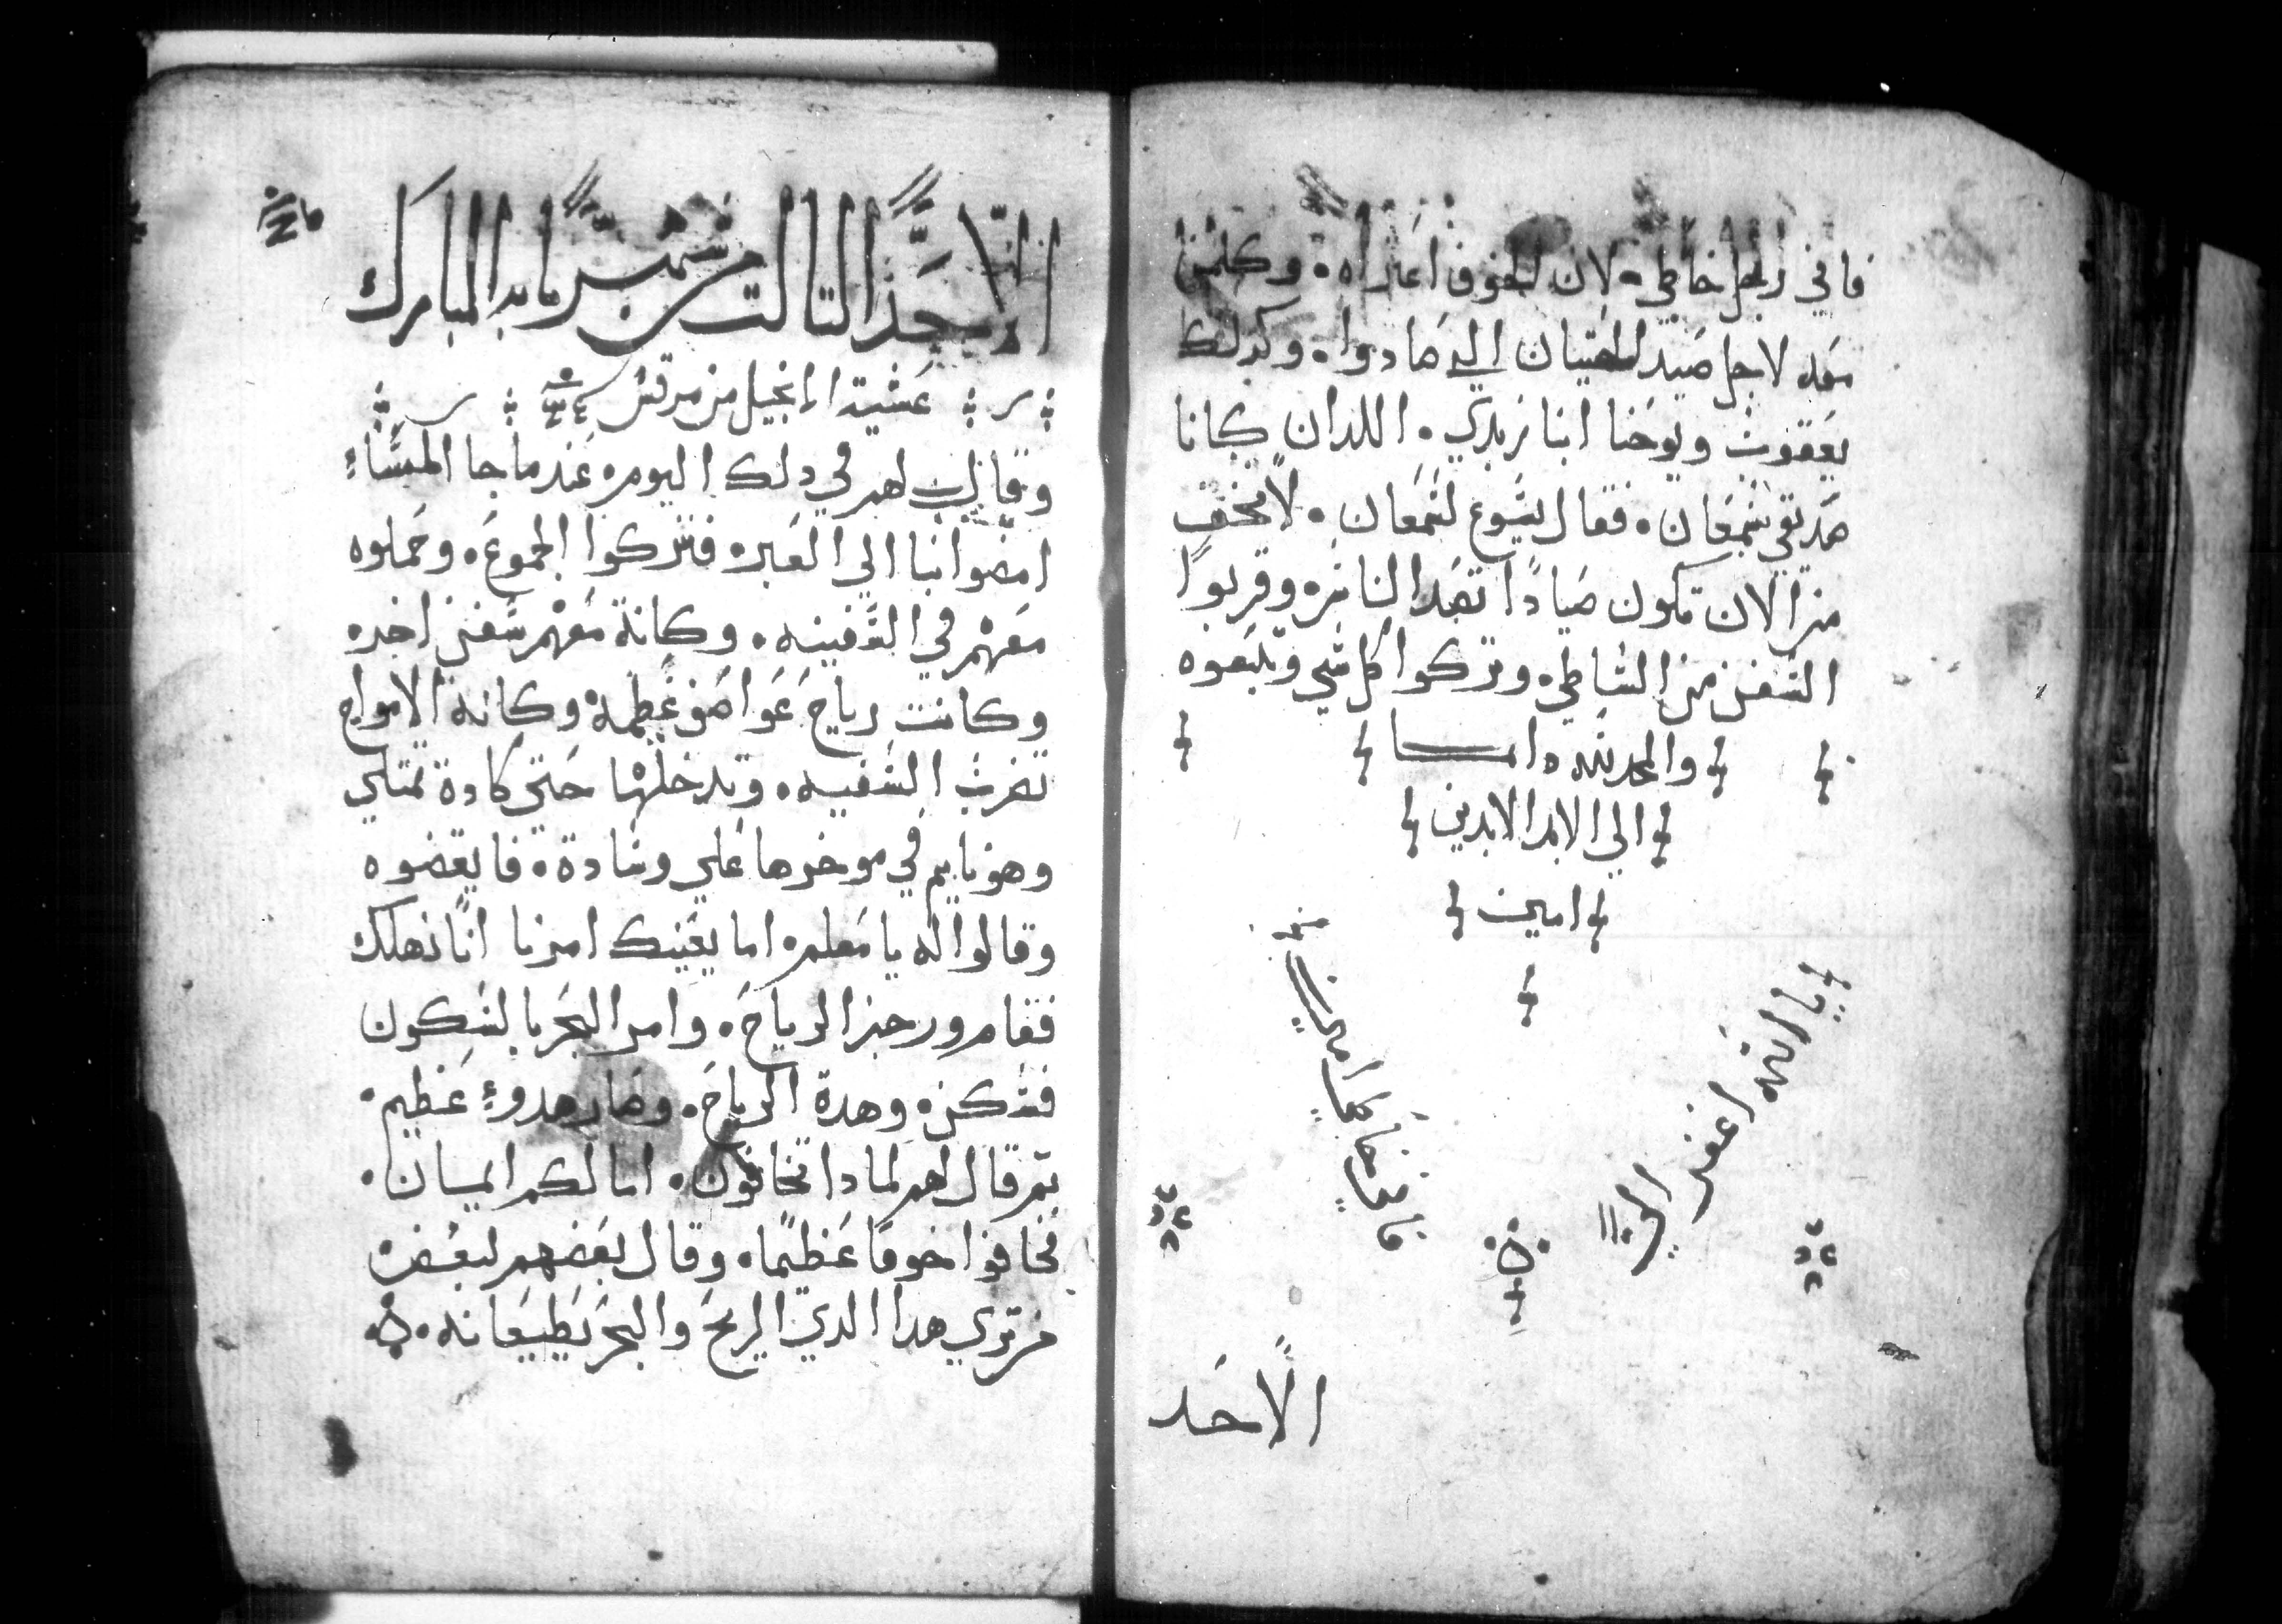 فاني رجل خاطي. لان الخوف اعتراه. وكلمن
معه لاجل صيد الحيتان الدي صادوا. وكدلك
يعقوب ويوحنا ابنا زبدي. اللدان كانا
صديقي شمعان. فقال يسوع لشمعان. لا تخف
من الان تكون صيادًا تصد الناس. وقربوا
السفن من الشاطي. وتركوا كل شي وتبعوه
والمجد لله دايمـــا
الي الابد الابدين
امين
يا الله اغفر
امين
الاحد
الاحد التالت من شهر بابه المبارك
عشية الانجيل من مرقس
وقال لهم في دلك اليوم. عندما جا المساءِ
امضوا بنا الي العبر. فتركوا الجموع. وحملوه
معهم في السفينه. وكانة معهم سفن اخر.
وكانت رياح عواصف عظيمة. وكانة الامواج
تضرب السفينه. وتدخلها حتي كادة تمتلي
وهو نايم في موخرها علي وسادة. فايقضوه
وقالوا له يا معلم. اما يعنيك امرنا انا نهلك
فقام وزجر الرياح. وامر البحر بالسكون
فسكن. وهدة الرياح. وصار هدوءٍ عظيم.
تم قال لهم لمادا تخافون. اما لكم ايمان.
فخافوا خوفًا عظيمًا. وقال بعضهم لبعض.
من تري هدا الدي الريح والبحر يطيعانه.